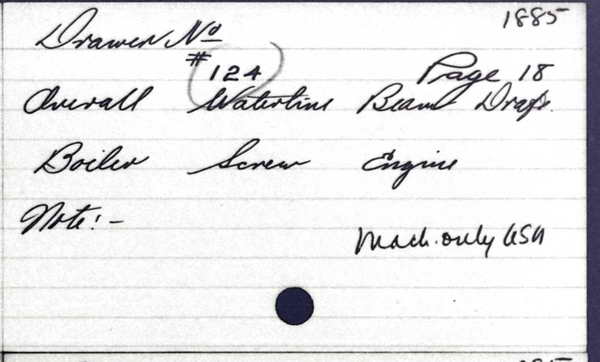 1885
Drawer No
#124 Page 18
Overall Waterline Beam Draft.
Boiler Screw Engine
Note:-
Mach. only USN